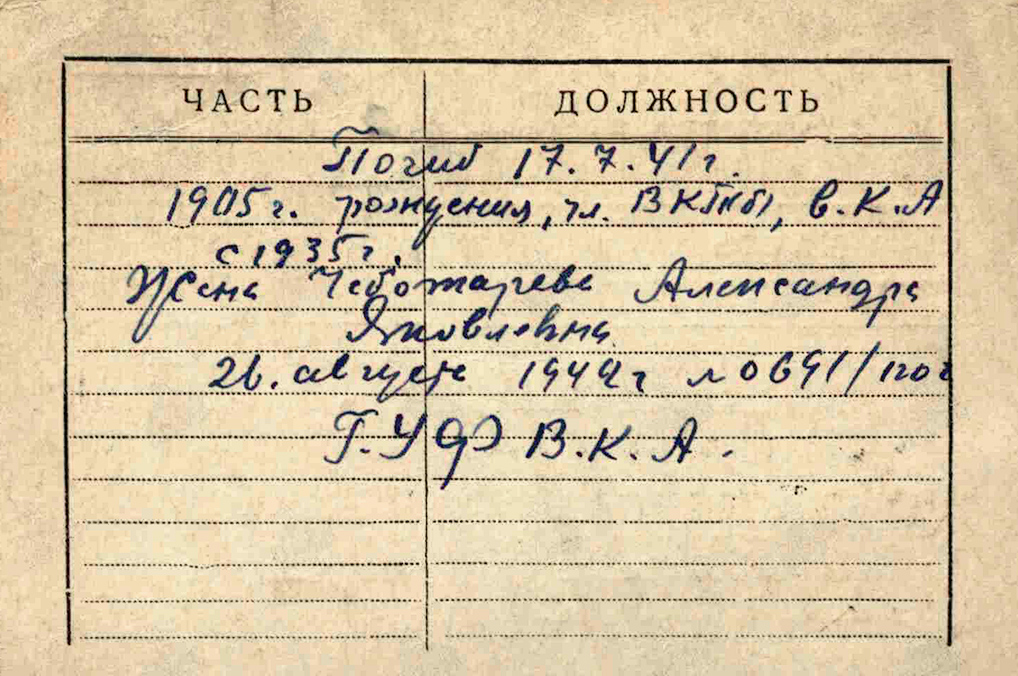 ЧАСТЬ ДОЛЖНОСТЬ
Погиб 17.7.41г.
1905г. рождения, чл. ВКП(б), в.К.А
с 1935г.
Жена Чеботарева Александра
Яковлевна
26. августа 1942г №0691/пог
Г.УФ В.К.А.